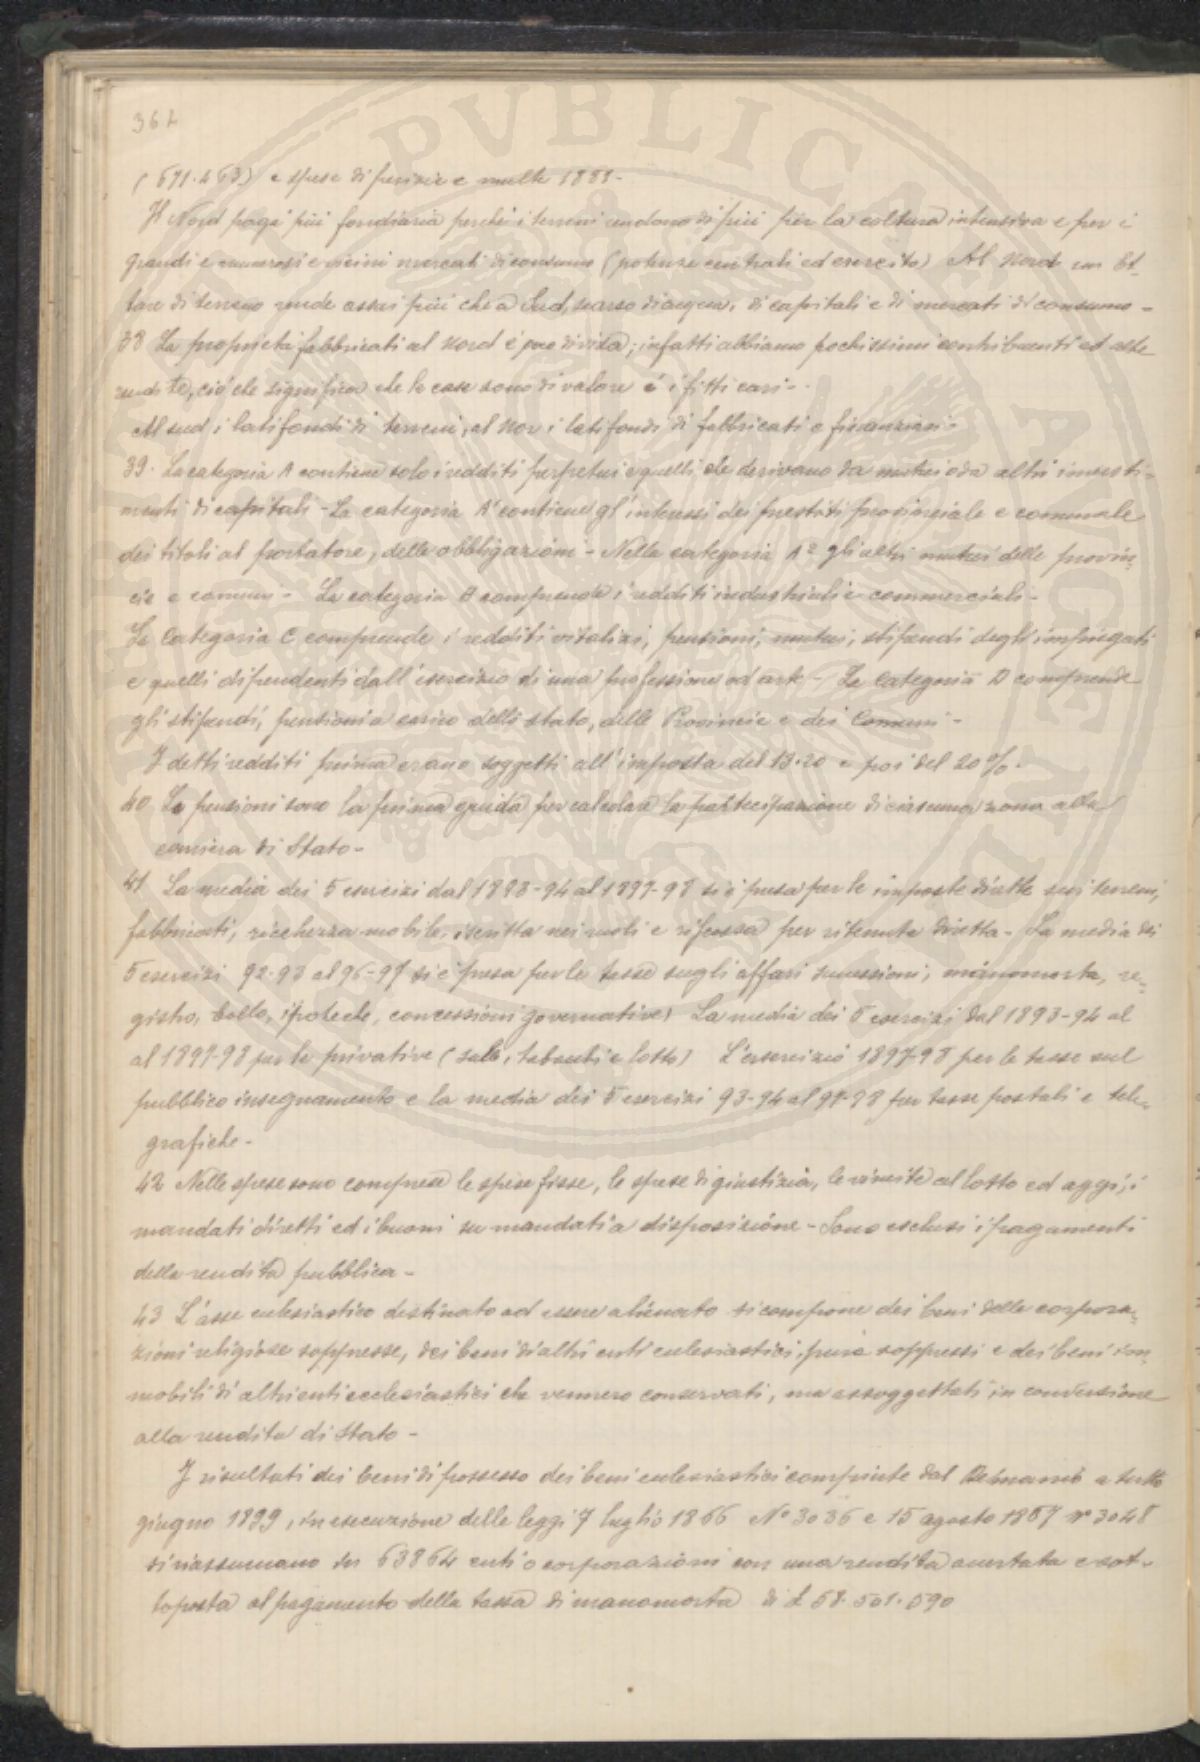 362
(691.463) e spese di perizie e multe 1881-
Il Nord paga più fondiaria perchè i terreni rendono di più per la coltura intensiva e per i
grandi e numerosi e vicini mercati di consumo (potenze centrali ed esercito) Al Nord un Et-
tare di terreno rende assai più che a Sud, scarso di acqua, di capitali e di mercati di consumo -
38 La proprietà fabbricati al Nord è poco divisa; infatti abbiamo pochissimi contribuenti ed alte
rendite, ciò che significa che le case sono di valore e i fitti cari -
Al sud i latifondi di terreni, al Nor i latifondi di fabbricati e finanziari -
39. La categoria A contiene solo i redditi perpetui e quelli che derivano da mutui o da altri investi-
menti di capitali - La categoria A' contiene gl'interessi dei prestiti provinciale e comunale
dei titoli al portatore, delle obbligazioni - Nella categoria A² gli altri mutui delle provin-
cie e comuni - La categoria B comprende i redditi industriali e commerciali -
La Categoria C comprende i redditi vitalizi, pensioni, mutui, stipendi degl'impiegati
e quelli dipendenti dall'esercizio di una professione od arte - La Categoria D comprende
gli stipendi, pensioni a carico dello stato, delle Provincie e dei Comuni -
I detti redditi prima erano soggetti all'imposta del 13.20 e poi del 20% -
40 Le pensioni sono la prima guida per calcolare la partecipazione di ciascuna zona alla
carriera di Stato -
41 La media dei 5 esercizi dal 1893-94 al 1897-98 si è presa per le imposte dirette sui terreni,
fabbricati, ricchezza mobile, iscritta nei ruoli e riscossa per ritenuta diretta - La media dei
5 esercizi 92-93 al 96-97 si è presa per le tasse sugli affari successioni, manomorta, re-
gistro, bollo, ipoteche, concessioni governative) La media dei 5 esercizi dal 1893-94 al
al 1897-98 per le privative (sale, tabacchi e lotto) L'esercizio 1897-98 per le tasse sul
pubblico insegnamento e la media dei 5 esercizi 93-94 al 97-98 per tasse postali e tele-
grafiche -
42 Nelle spese sono comprese le spese fisse, le spese di giustizia, le vincite al lotto ed aggi, i
mandati diretti ed i buoni su mandati a disposizione - Sono esclusi i pagamenti
della rendita pubblica -
43 L'asse ecclesiastico destinato ad essere alienato si compone dei beni delle corpora-
zioni religiose soppresse, dei beni di altri enti ecclesiastici, pure soppressi e dei beni im-
mobili di altri enti ecclesiastici che vennero conservati, ma assoggettati in conversione
alla rendita di Stato -
I risultati dei beni di possesso dei beni ecclesiastici compiute dal Demanio a tutto
giugno 1899, in esecuzione delle leggi 7 luglio 1866 N° 3036 e 15 agosto 1867 n° 3048
si riassumano in 63864 enti o corporazioni con una rendita accertata e sot-
toposta al pagamento della tassa di manomorta di £ 58.501.590